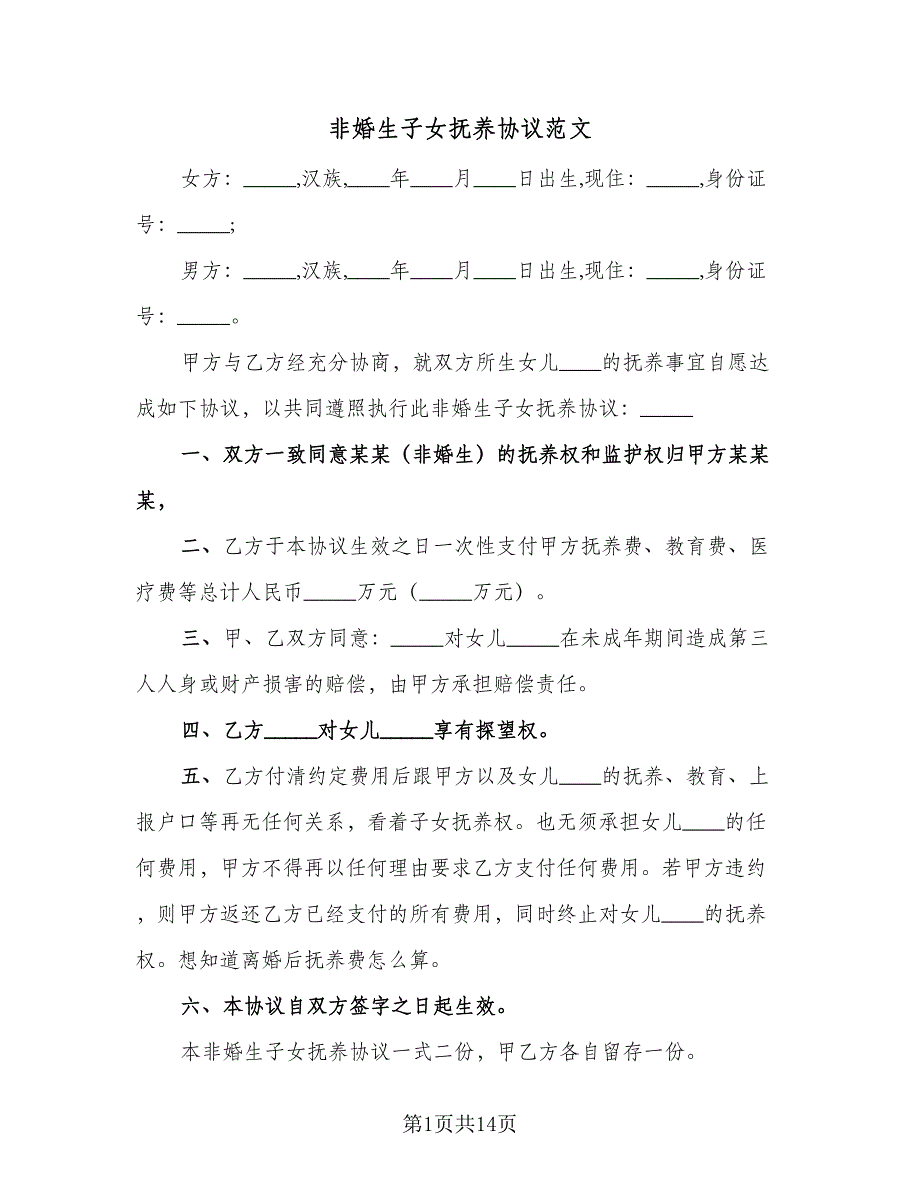 非婚生子女抚养协议范文
女方：_____,汉族,____年____月____日出生,现住：_____,身份证
号：_____;
男方：_____,汉族,____年____月____日出生,现住：_____,身份证
号：_____。
甲方与乙方经充分协商，就双方所生女儿____的抚养事宜自愿达
成如下协议，以共同遵照执行此非婚生子女抚养协议：_____
一、双方一致同意某某（非婚生）的抚养权和监护权归甲方某某
某，
二、乙方于本协议生效之日一次性支付甲方抚养费、教育费、医
疗费等总计人民币_____万元（_____万元）。
三、甲、乙双方同意：_____对女儿_____在未成年期间造成第三
人人身或财产损害的赔偿，由甲方承担赔偿责任。
四、乙方_____对女儿_____享有探望权。
五、乙方付清约定费用后跟甲方以及女儿____的抚养、教育、上
报户口等再无任何关系，看着子女抚养权。也无须承担女儿____的任
何费用，甲方不得再以任何理由要求乙方支付任何费用。若甲方违约
，则甲方返还乙方已经支付的所有费用，同时终止对女儿____的抚养
权。想知道离婚后抚养费怎么算。
六、本协议自双方签字之日起生效。
本非婚生子女抚养协议一式二份，甲乙方各自留存一份。
第1页共14页